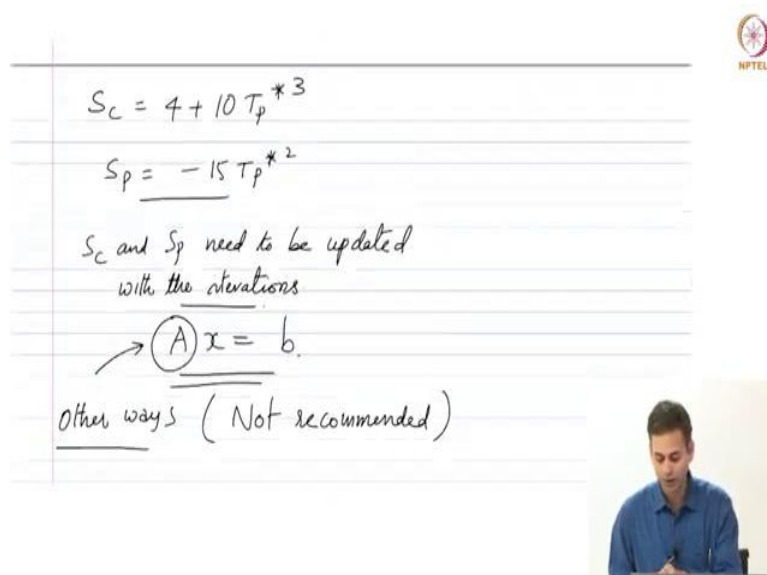 NPTEL
Sc = 4 + 10 Tp*3
Sp = - 15 Tp*2
Sc and Sp need to be updated
with the iterations
A x = b.
Other ways ( Not recommended )